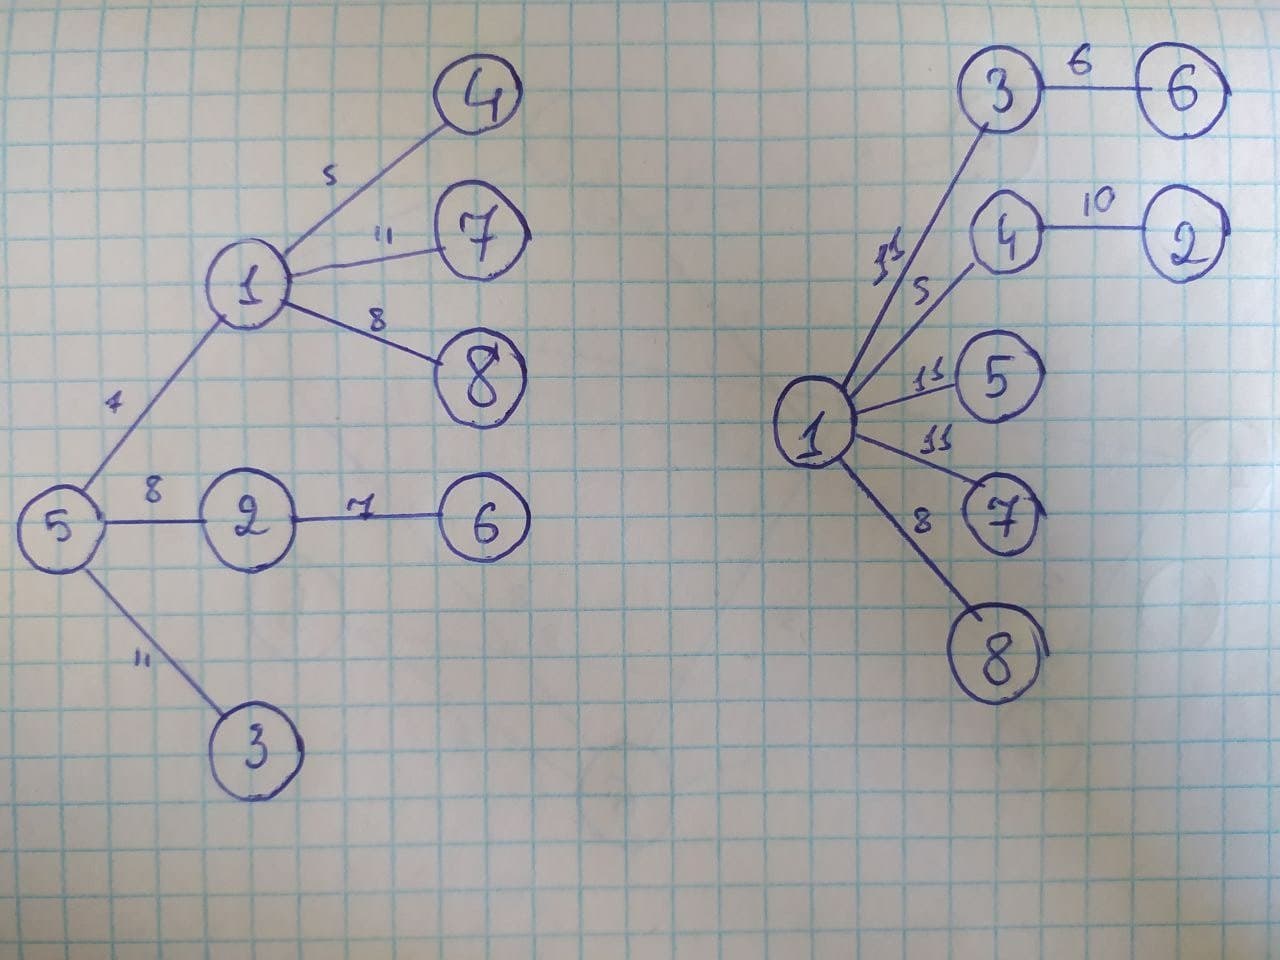 4
5
7
11
1
8
8
7
5
8
2
7
6
11
3
3
6
6
4
10
2
11
5
11
5
1
11
7
8
8